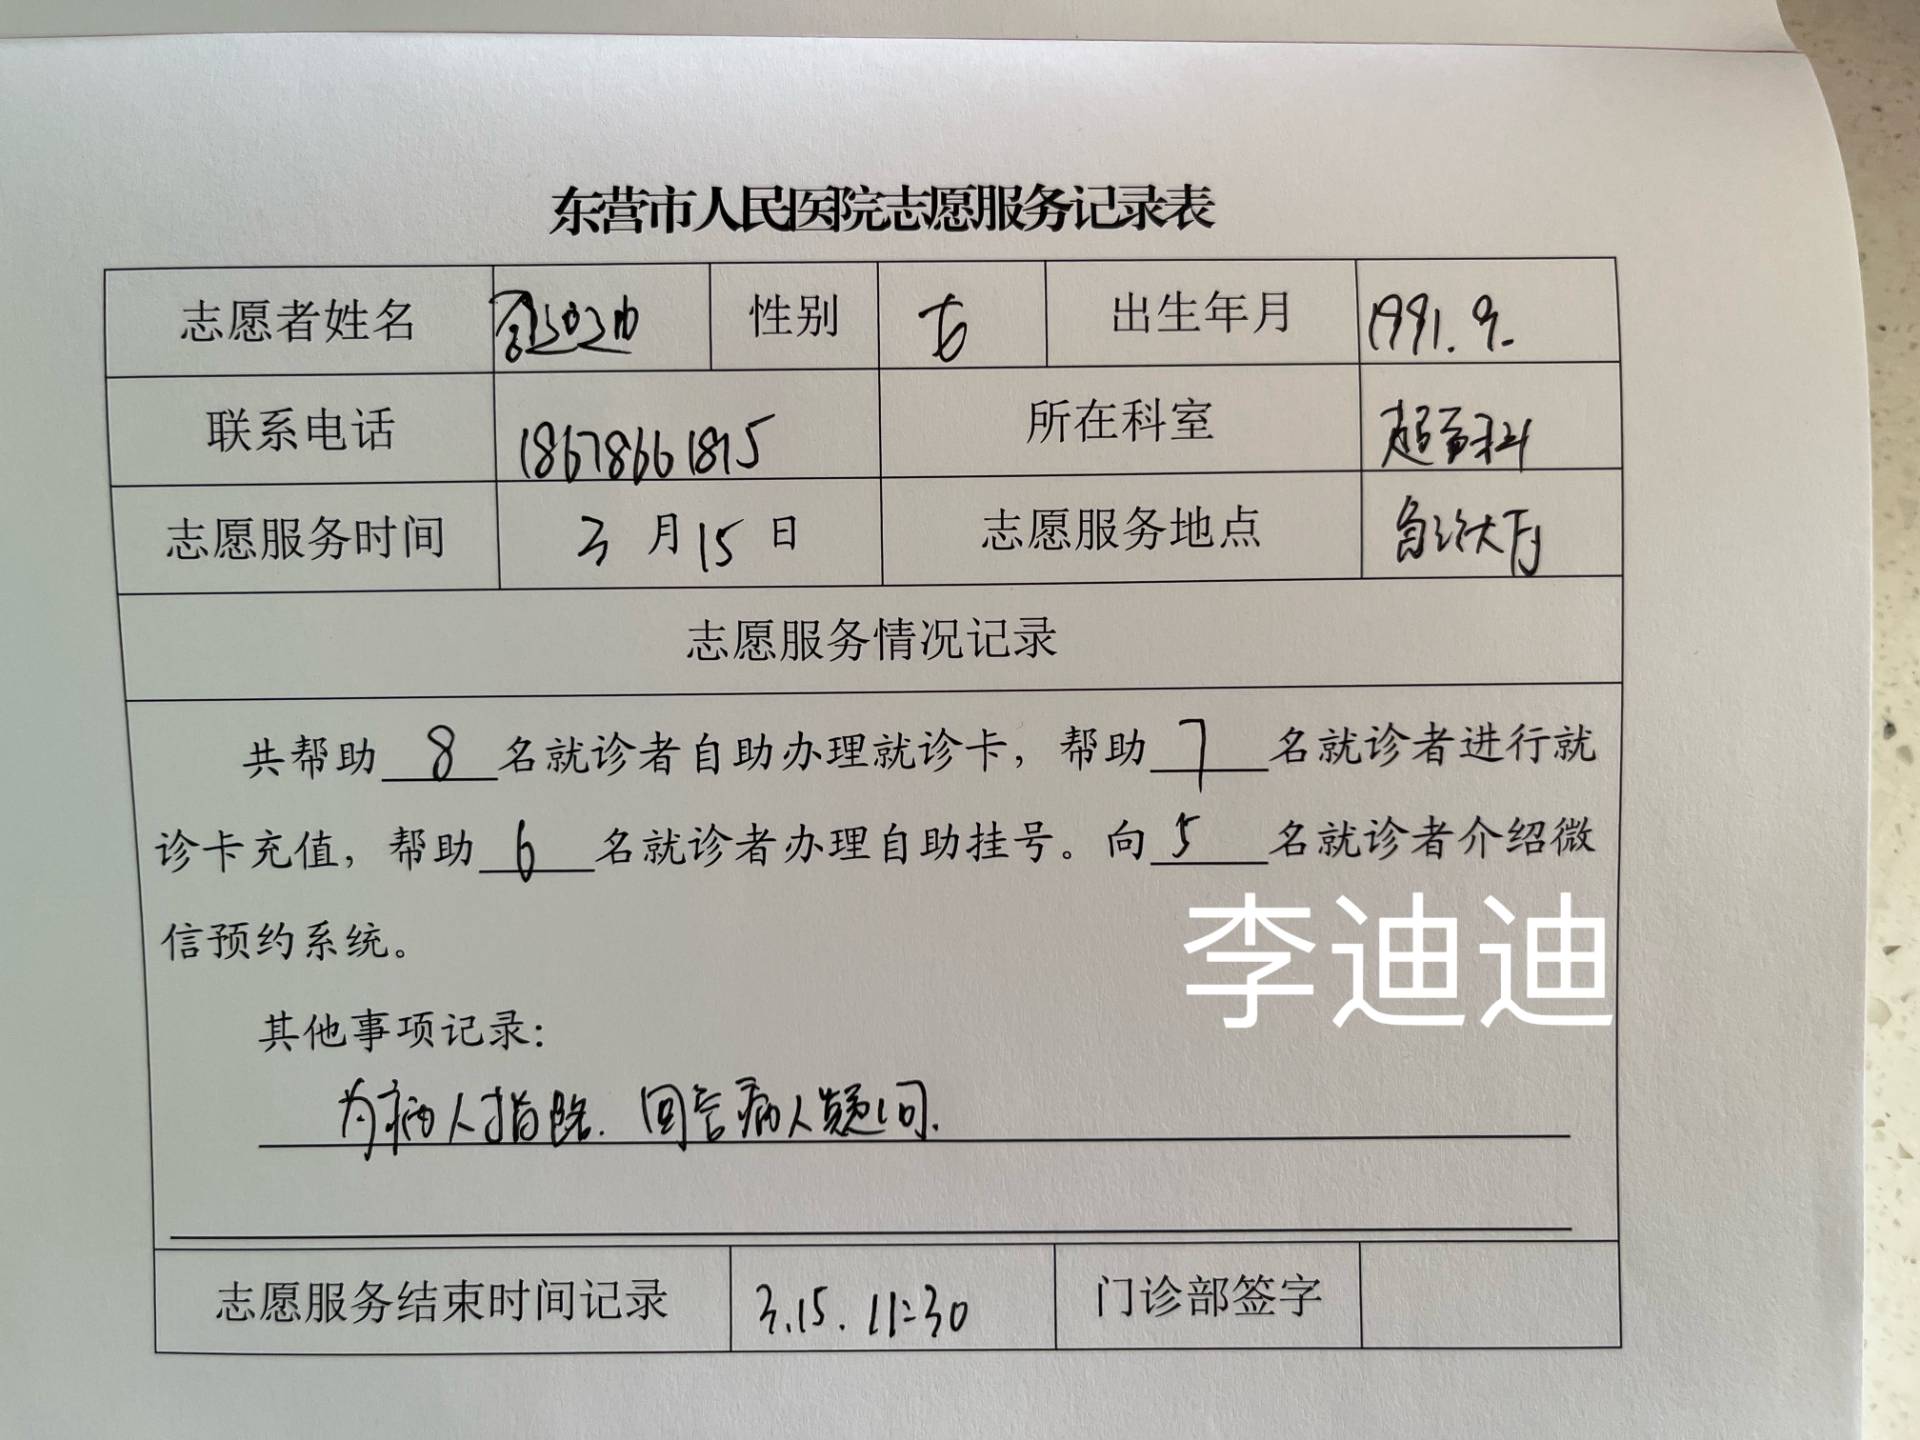 东营市人民医院志愿服务记录表
志愿者姓名 李迪迪 性别 女 出生年月 1991.9.
联系电话 18678661815 所在科室 超声科
志愿服务时间 3月15日 志愿服务地点 门诊大厅
志愿服务情况记录
共帮助8名就诊者自助办理就诊卡，帮助7名就诊者进行就
诊卡充值，帮助6名就诊者办理自助挂号。向5名就诊者介绍微
信预约系统。
李迪迪
其他事项记录：
为病人指路.回答病人疑问.
志愿服务结束时间记录 3.15.11:30 门诊部签字